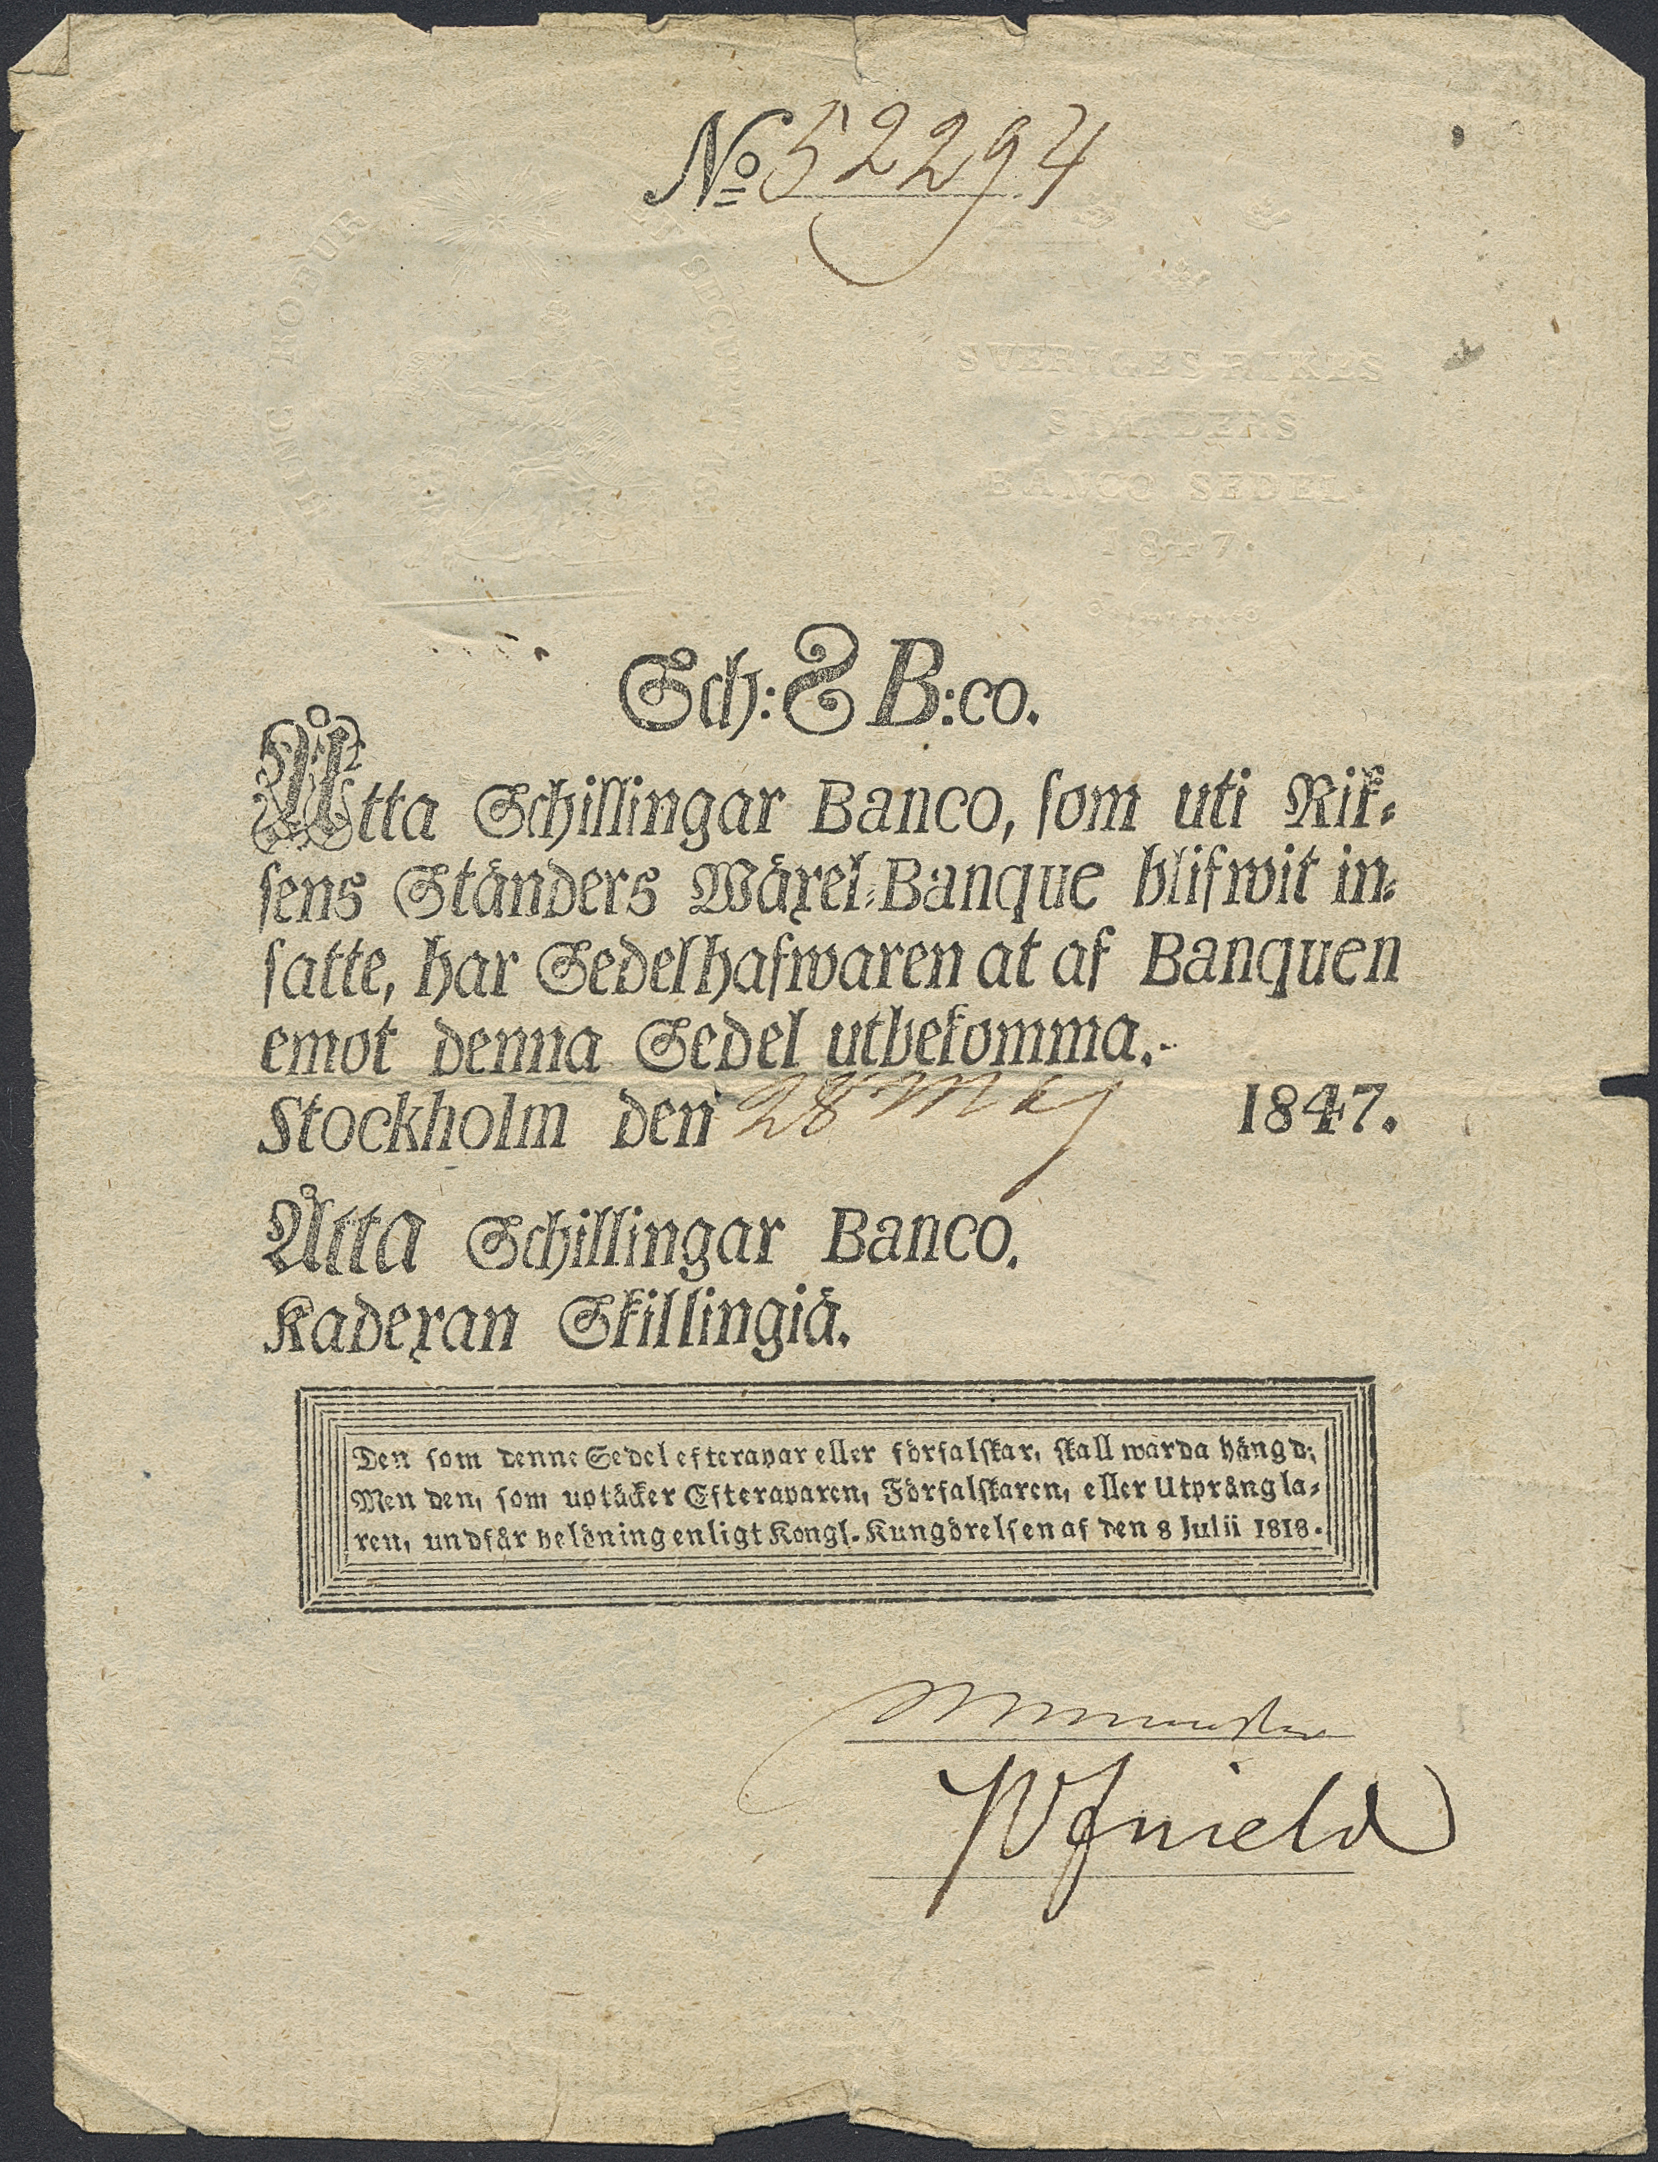 No 52294
HINC ROBUR ET SECURITAS
SVERIGES RIKES
STÄNDERS
BANCO SEDEL
1847.
Sch: 8 B:co.
Åtta Schillingar Banco, som uti Rik-
sens Ständers Wäxel-Banque blifwit in-
satte, har Sedelhafwaren at af Banquen
emot denna Sedel utbekomma.
Stockholm den 28 Maj 1847.
Åtta Schillingar Banco.
Kadexan Skillingiä.
Den som denne Sedel efterapar eller förfalskar, skall warda hängd;
Men den, som uptäcker Efteraparen, Förfalskaren, eller Utprångla-
ren, undfår belöning enligt Kongl. Kungörelsen af den 8 Julii 1818.